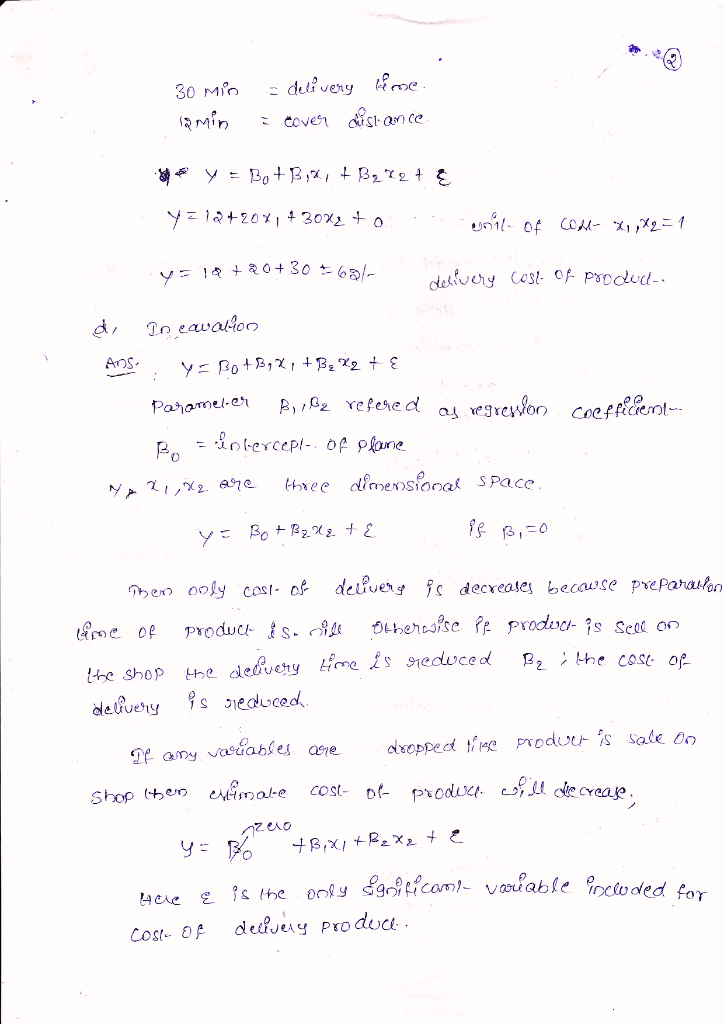 2
30 Min = delivery time.
12 Min = cover distance.
y = B₀ + B₁x₁ + B₂x₂ + ε
y = 12 + 20x₁ + 30x₂ + 0 unit of cost x₁, x₂ = 1
y = 12 + 20 + 30 = 62/- delivery cost of product.
d, In eauation
Ans. y = B₀ + B₁x₁ + B₂x₂ + ε
Parameter B₁, B₂ refered as regression coefficient
B₀ = intercept. of plane
x₁, x₂ are three dimensional space.
y = B₀ + B₂x₂ + ε if B₁ = 0
Then only cost of delivery is decreases because preparation
time of product is nill otherwise if product is sell on
the shop the delivery time is reduced B₂ ; the cost of
delivery is reduced.
If any variables are dropped like product is sale on
shop then estimate cost of product will decrease;
zero
y = B₀ + B₁x₁ + B₂x₂ + ε
Here ε is the only significant variable included for
cost of delivery product.